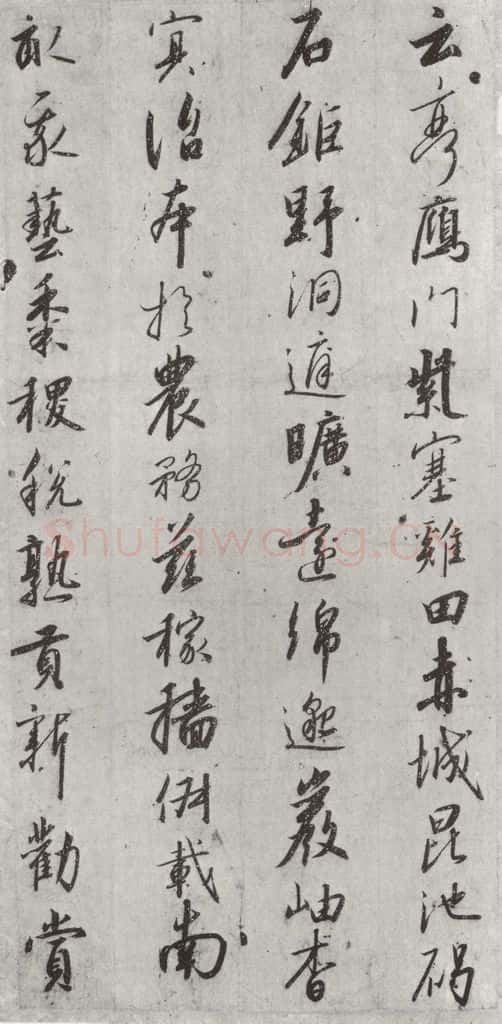 云亭鴈門紫塞雞田赤城昆池碣
石鉅野洞庭曠遠綿邈巖岫杳
冥治本於農務茲稼穡俶載南
畝我藝黍稷稅熟貢新勸賞
Shufawang.CN